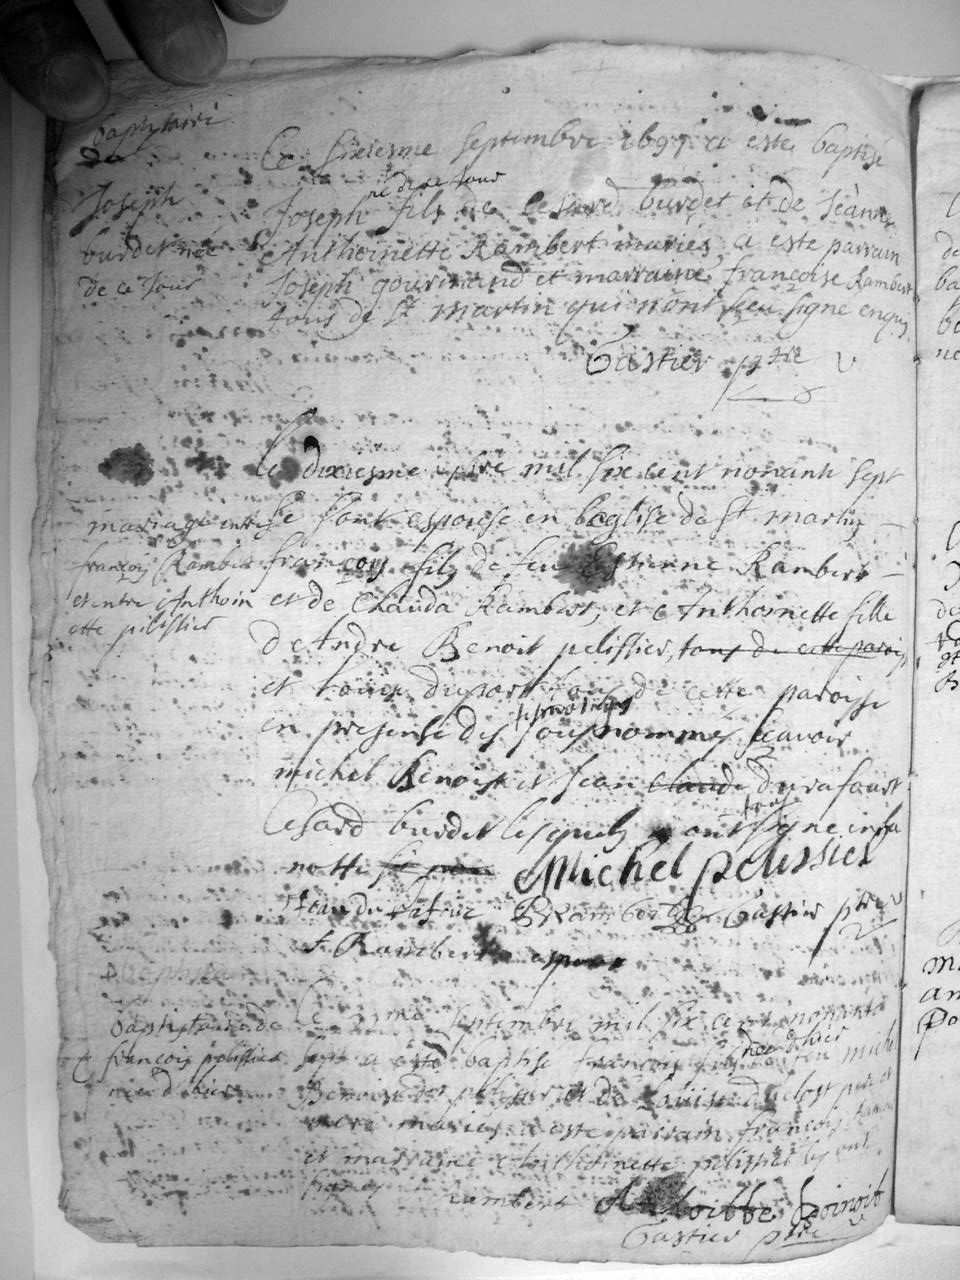 baptistaire
de
Joseph
burdet née
de ce Jour
Ce sixiesme septembre 1697 a este baptisé
né de ce Jour
Joseph fils de Cesard burdet et de Jeanne
Anthoinette Rambert mariés, a este parrain
Joseph gourmand et marraine francoise Rambert
tous de st martin qui n'ont sceu signe enquis
Gastier ptre
mariage entre
françois Rambert
et entre Anthoin
ette pelissier
le dixiesme 7bre mil six cent nonante sept
se sont espouse en l'eglise de st martin
françois filz de feu Estienne Rambert
et de Clauda Rambert, et Anthoinette fille
de Andre Benoit pelissier, tous de cette parois
et Louise duport tous de cette paroisse
en presence des sousnommes scavoir
michel Benoist et Jean claude durafourt
Cesard burdet lesquels ont signe en la
notte Michel pelissier
Jean du rafour Rambert Gastier ptre
f Rambert espoux
baptistaire de
françois pelissier
née d'hier
Ce septembre mil six cent nonante
née d'hier
sept a este baptise francois fils a feu michel
Benoist pelissier et de Louise duclost pere et
mere mariés a este parrain françois Ramber
et marraine Anthoinette pelissier les ont
signes
Rambert Antoitte boinoit
Gastier ptre